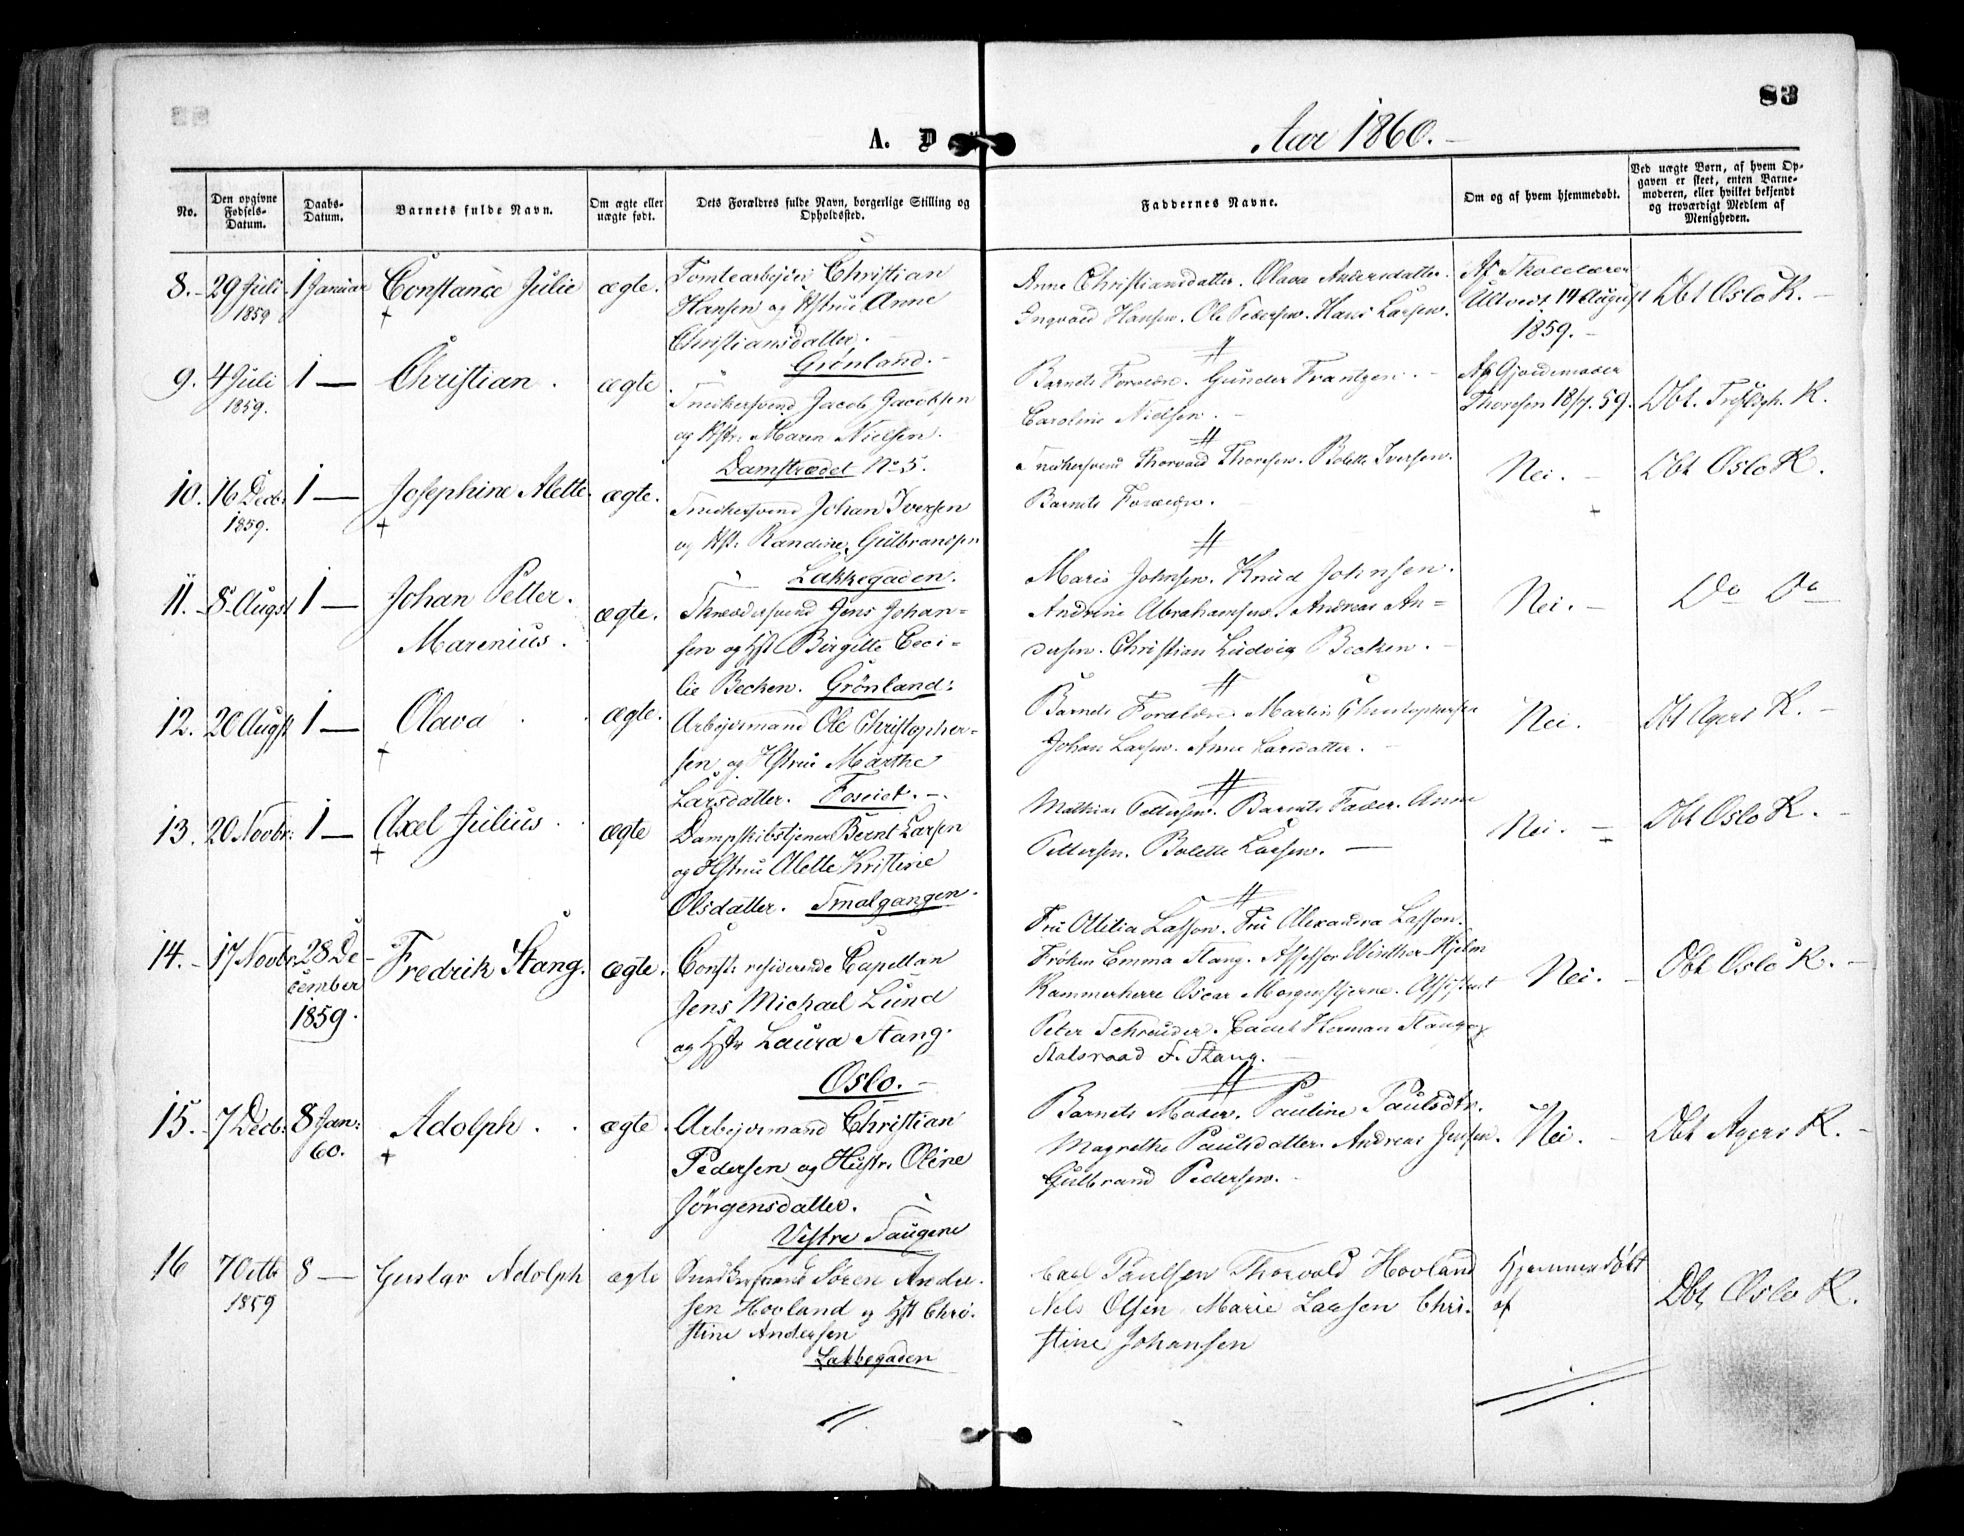 83
A. D
Aar 1860.
No.
Den opgivne Fødsels-Datum.
Daabs-Datum.
Barnets fulde Navn.
Om ægte eller uægte født.
Dets Forældres fulde Navn, borgerlige Stilling og Opholdssted.
Faddernes Navne.
Om og af hvem hjemmedøbt.
Ved uægte Børn, af hvem Opgaven er skeet, enten Barnemoderen, eller hvilket bekjendt og troværdigt Medlem af Menigheden.
8. 29 Juli 1859 1 Januar Constance Julie ægte.
Tomtearbejder Christian
Hansen og Hstrue Anne
Christiansdatter.
Grønland.
Anne Christiansdatter. Olava Andersdatter.
Ingvald Hansen. Ole Pedersen. Hans Larsen.
Af Skolelærer
Ultvedt 14 August
1859.
Dbt Oslo K.
9. 4 Juli 1859. 1 — Christian. ægte
Snedkersvend Jacob Jacobsen
og Hstr: Maren Nielsen.
Damstrædet No 5.
Barnets Forældre. Gunder Frantzen.
Caroline Nielsen.
Af Gjordemoder
Thoresen 18/7. 59.
Dbt. Trefldgh. K.
10. 16 Decbr: 1859. 1 — Josephine Alette. ægte.
Snedkersvend Johan Iversen
og Hst: Randine Gulbransen
Lakkegaden.
Snedkersvend Thorvald Thoresen. Bolette Iversen.
Barnets Forældre.
Nei.
Dbt Oslo K.
11. 8 Augst 1 — Johan Petter.
Marenius.
ægte.
Skrædersvend Jens Johan-
sen og Hst Birgitte Ceci-
lie Becken. Grønland:
Maris Johnsen. Knud Johnsen.
Andrine Abrahamsen. Andreas An-
dersen. Christian Ludvig Becken.
Nei.
Do Do
12. 20 Augst 1 — Olava ægte.
Arbejdsmand Ole Christopher-
sen og Hstrue Marthe
Larsdatter.
Barnets Forældre. Martin Christophersen
Johan Larsen. Anne Larsdatter.
Nei.
Dbt Agers K.
13. 20 Novbr: 1 — Axel Julius ægte
Dampskibstjener Bernt Larsen
og Hstrue Alette Kristine
Olsdatter. Smalgangen.
Mathias Pettersen. Barnets Fader. Anne
Pettersen. Bolette Larsen.
Nei.
Dbt Oslo K.
14. 17 Novbr. 28 De-
cember
1859.
Fredrik Stang. ægte.
Const: residerende Capellan
Jens Michael Lund
og Hstr Laura Stang.
Oslo.
Fru Ottilia Lasson. Fru Alexandra Lasson.
Frøken Emma Stang. Assessor Winther-Hjelm
Kammerherre Oscar Morgenstjerne. Assistent
Peter Schreuder. Cadet Herman Stang og
Statsraad F. Stang.
Nei.
Dbt Oslo K.
15. 7 Decbr: 8 Jan: 60. Adolph. ægte.
Arbejdsmand Christian
Pedersen og Hustr. Oline
Jørgensdatter.
Vestre Taugene
Barnets Moder. Pauline Paulsdtr.
Magrethe Paulsdatter. Andreas Jensen.
Gulbrand Pedersen.
Nei.
Dbt Agers K.
16 7 Octb 1859 8 — Gustav Adolph ægte
Snedkersvend Søren Ander-
sen Hovland og Hst Chri-
stine Andersen
Lakkegaden
Carl Paulsen Thorvald Hovland
Nels Olsen Marie Larsen Chri-
stine Johansen
Hjemmedøbt
af
Dbt Oslo K.